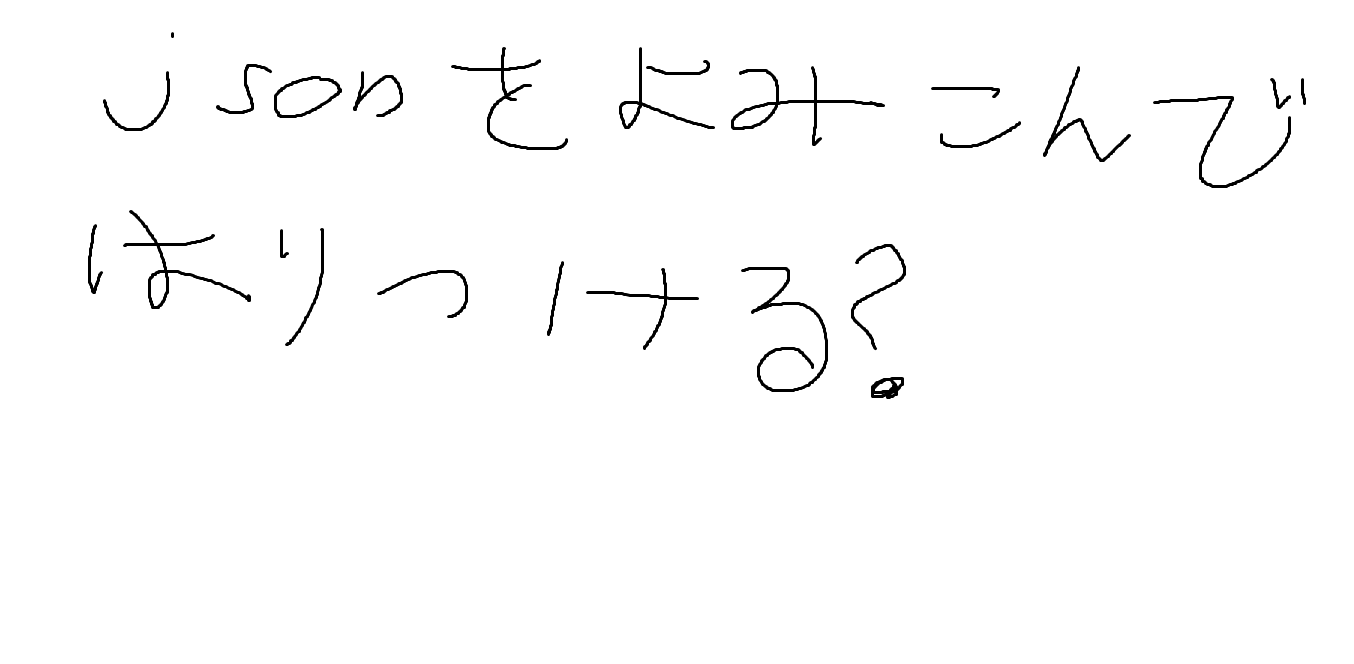 jsonをよみこんで
はりつける?